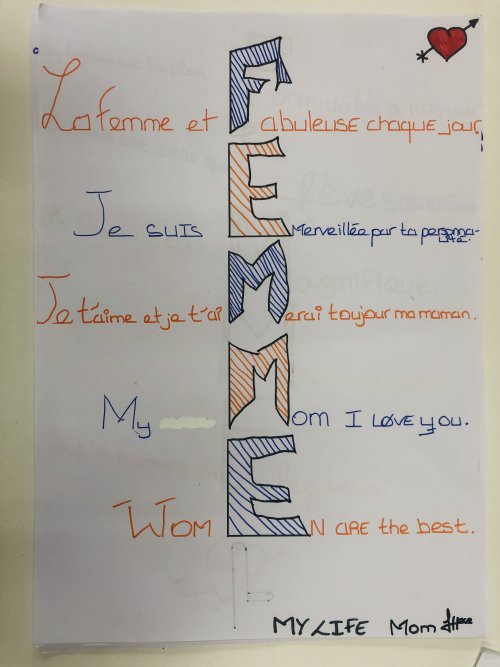 La femme et Fabuleuse chaque jour,
Je suis EMerveillée par ta personalité.
Je t'aime et je t'aiMerai toujour ma maman.
My MOM I LOVE YOU.
WOMEN ARE the best.
MY LIFE Mom